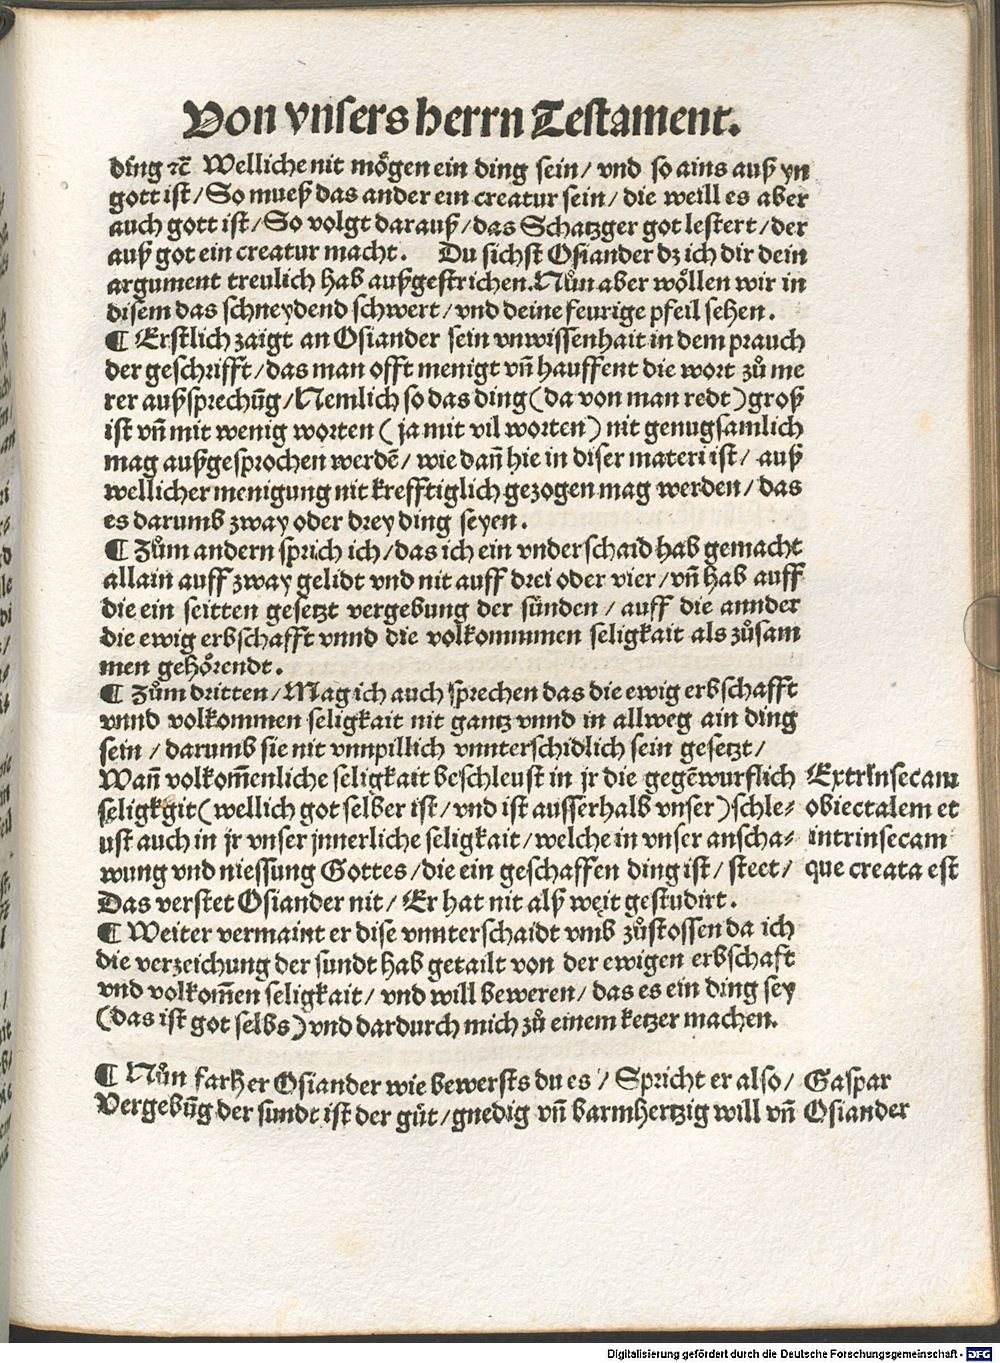 Von vnsers herrn Testament.
ding ⁊c̄ Welliche nit mögen ein ding sein/ vnd so ains auß yn
gott ist/ So mueß das ander ein creatur sein/ die weill es aber
auch gott ist/ So volgt darauß/ das Schatzger got lestert/ der
auß got ein creatur macht. Du sichst Osiander dz ich dir dein
argument treulich hab außgestrichen. Nůn aber wöllen wir in
disem das schneydend schwert/ vnd deine feurige pfeil sehen.
¶ Erstlich zaigt an Osiander sein vnwissenhait in dem prauch
der geschrifft/ das man offt menigt vñ hauffent die wort zů me
rer außsprechũg/ Nemlich so das ding (da von man redt) groß
ist vñ mit wenig worten (ja mit vil worten) nit genugsamlich
mag außgesprochen werdẽ/ wie dañ hie in diser materi ist/ auß
wellicher menigung nit krefftiglich gezogen mag werden/ das
es darumb zway oder drey ding seyen.
¶ Zům andern sprich ich/ das ich ein vnderschaid hab gemacht
allain auff zway gelidt vnd nit auff drei oder vier/ vñ hab auff
die ein seitten gesetzt vergebung der sünden/ auff die annder
die ewig erbschafft vnnd die volkommmen seligkait als zůsam
men gehörendt.
¶ Zům dritten/ Mag ich auch sprechen das die ewig erbschafft
vnnd volkommen seligkait nit gantz vnnd in allweg ain ding
sein/ darumb sie nit vnnpillich vnnterschidlich sein gesetzt/
Wañ volkom̃enliche seligkait beschleust in jr die gegẽwurflich Extrinsecam
seligkgit (wellich got selber ist/ vnd ist ausserhalb vnser) schle⸗ obiectalem et
ust auch in jr vnser jnnerliche seligkait/ welche in vnser anscha⸗ intrinsecam
wung vnd niessung Gottes/ die ein geschaffen ding ist/ steet/ que creata est
Das verstet Osiander nit/ Er hat nit alß weit gestudirt.
¶ Weiter vermaint er dise vnnterschaidt vmb zůstossen da ich
die verzeichung der sundt hab getailt von der ewigen erbschaft
vnd volkom̃en seligkait/ vnd will beweren/ das es ein ding sey
(das ist got selbs) vnd dardurch mich zů einem ketzer machen.
¶ Nůn farher Osiander wie bewersts du es/ Spricht er also/ Gaspar
Vergebũg der sundt ist der gůt/ gnedig vñ barmhertzig will vñ Osiander
Digitalisierung gefördert durch die Deutsche Forschungsgemeinschaft - DFG